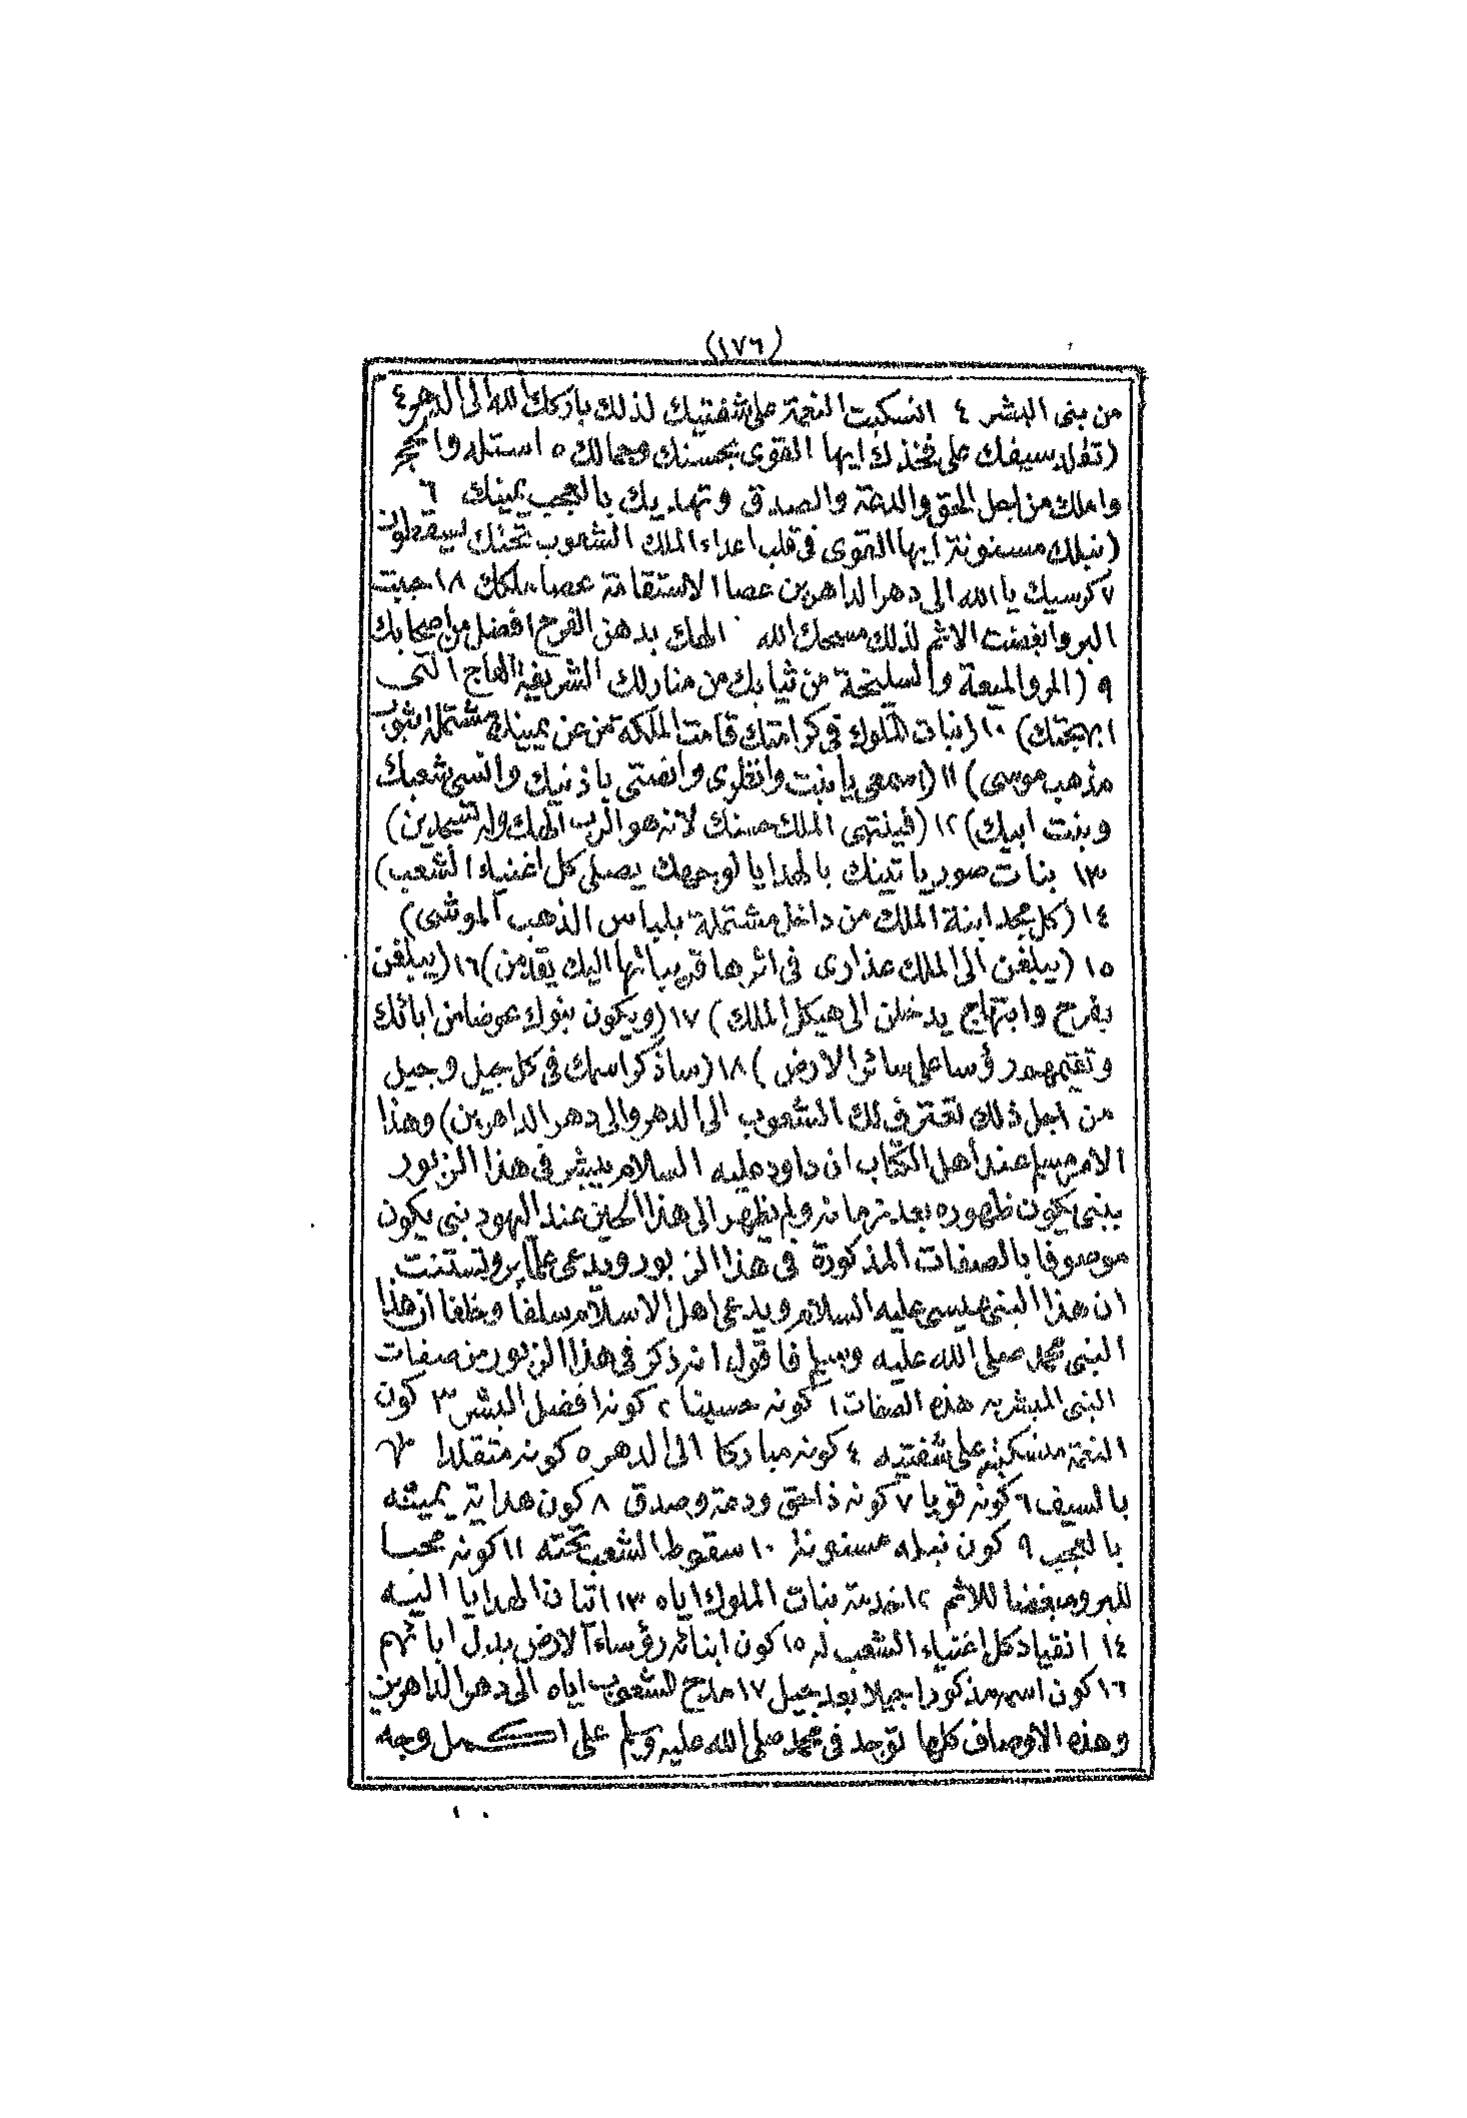 (١٧٦)
من بنى البشر ٤ انسكبت النعمة على شفتيك لذلك باركك الله الى الدهر ٤
(تقلد سيفك على فخذك ايها القوى بحسنك وجمالك ٥ استله وانجح
واملك من اجل الحق والدعة والصدق وتهديك بالعجب يمينك ٦
(نبلك مسنونة ايها القوى فى قلب اعداء الملك الشعوب تحتك يسقطون
٧ كرسيك يا الله الى دهر الداهرين عصا الاستقامة عصا ملكك ٨ احببت
البر وابغضت الاثم لذلك مسحك الله الهك بدهن الفرح افضل من اصحابك
٩ (المر والميعة والسليخة من ثيابك من منازلك الشريفة العاج التى
ابهجتك) ١٠ (بنات الملوك فى كرامتك قامت الملكة من عن يمينك مشتملة بثوب
مذهب موسى) ١١ (اسمعى يا بنت وانظرى وانصتى باذنيك وانسى شعبك
وبنت ابيك) ١٢ (فيشتهى الملك حسنك لانه هو الرب الهك وله تسجدين)
١٣ بنات صور ياتينك بالهدايا لوجهك يصلى كل اغنياء الشعب)
١٤ (كل مجد ابنة الملك من داخل مشتملة بلباس الذهب الموشى)
١٥ (يبلغن الى الملك عذارى فى اثرها قريباتها اليك يقدمن) ١٦ (يبلغن
بفرح وابتهاج يدخلن الى هيكل الملك) ١٧ (ويكون بنوك عوضا من ابائك
وتقيمهم رؤسا على سائر الارض) ١٨ (ساذكر اسمك فى كل جيل وجيل
من اجل ذلك تعترف لك الشعوب الى الدهر والى دهر الداهرين) وهذا
الامر مسلم عند أهل الكتاب ان داود عليه السلام يبشر فى هذا الزبور
بنبى يكون ظهوره بعد زمانه ولم يظهر الى هذا الحين عند اليهود نبى يكون
موصوفا بالصفات المذكورة فى هذا الزبور ويدعى علماء پروتستنت
ان هذا النبى عيسى عليه السلام ويدعى اهل الاسلام سلفا وخلفا ان هذا
النبى محمد صلى الله عليه وسلم فاقول انه ذكر فى هذا الزبور من صفات
النبى المبشر به هذه الصفات ١ كونه حسينا ٢ كونه افضل البشر ٣ كون
النعمة منسكبة على شفتيه ٤ كونه مباركا الى الدهر ٥ كونه متقلدا
بالسيف ٦ كونه قويا ٧ كونه ذا حق ودعة وصدق ٨ كون هداية يمينه
بالعجب ٩ كون نبله مسنونة ١٠ سقوط الشعب تحته ١١ كونه محبا
للبر ومبغضا للاثم ١٢ خدمة بنات الملوك اياه ١٣ اتيان الهدايا اليه
١٤ انقياد كل اغنياء الشعب له ١٥ كون ابنائه رؤساء الارض بدل ابائهم
١٦ كون اسمه مذكورا جيلا بعد جيل ١٧ مدح الشعوب اياه الى دهر الداهرين
وهذه الاوصاف كلها توجد فى محمد صلى الله عليه وسلم على اكمل وجه